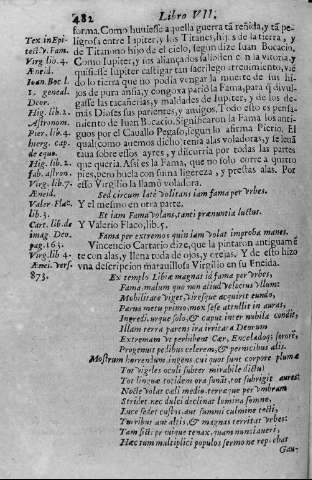 482 Libro VII.
forma. Como huuiesse aquella guerra tã reñida, y tã pe-
ligrosa entre Iupiter, y los Titanes, hijos de la tierra, y
de Titanno hijo del cielo, segun dize Iuan Bocacio,
Como Iupiter, y sus aliançados saliessen con la vitoria, y
quisiesse Iupiter castigar tan
do lo la tierra que no podia vengar la muerte de sus hi-
jos de pura ansia, y congoxa pario la Fama, para q̃ diuul-
gasse las tacañerias, y maldades de Iupiter, y de los de-
mas Dioses sus parientes, y amigos. Todo esto es pensa-
miento de Iuan Bocacio. Significaron la Fama los anti-
guos por el Cauallo Pegaso, segun lo afirma Pierio. El
qual como auemos dicho, tenia alas voladoras, y se leuã
taua sobre essos ayres, y discurria por todas las partes
que queria. Assi es la Fama, que no solo corre a quatro
pies, pero buela con suma ligereza, y prestas alas. Por
esso Virgilio la llamò voladora.
Sed circum latè volitans iam fama per vrbes.
Y el mesmo en otra parte.
Et iam Fama volans, tanti prænuntia luctus.
Y Valerio Flaco, lib. 5.
Fama per extremos quin iam volat improba manes.
Vincencio Cartario dize, que la pintaron antiguamẽ
te con alas, y llena toda de ojos, y orejas. Y de esso hizo
vna descripcion marauillosa Virgilio en su Eneida.
Ex templo Libiæ magnas id fama per vrbes,
Fama malum quo non aliud velocius vllum:
Mobilitate viget, viresque acquirit eundo,
Parua metu primo, mox sese attollit in auras,
Ingreditурque solo, & caput inter nubila condit,
Illam terra parens ira irritata Deorum
Extremam vt perhibent Cæo, Enceladoq́ sororẽ,
Progenuit pedibus celerem, & pernicibus alis.
Monstrum horrendum, ingens cui quot sunt corpore plumæ
Tot vigiles oculi subter mirabile dictu
Tot linguæ, totidem ora sonãt, tot subrigit aures.
Nocte volat cæli medio, terræque per vmbram
Stridet, nec dulci declinat lumina somno,
Luce sedet custos, aut summi culmine tecti,
Turribus aut altis, & magnas territat vrbes:
Tam ficti, prauique tenax, quam nuntia veri,
Hæc tum multiplici populos sermone replebat
Gau-
Tex in Epi-
tect. V. Fam.
Virg. lib. 4.
Æneid.
Ioan. Boc. l.
1. geneal.
Deor.
Hig. lib. 2.
Astronom.
Pier. lib. 4.
hierg. cap.
de equo.
Hig. lib. 2.
fab. astron.
Virg. lib. 7.
Æneid.
Valer. Flac.
lib. 3.
Cart. lib. de
imag. Deo.
pag. 163.
Virg. lib. 4.
Ænei. vers.
873.